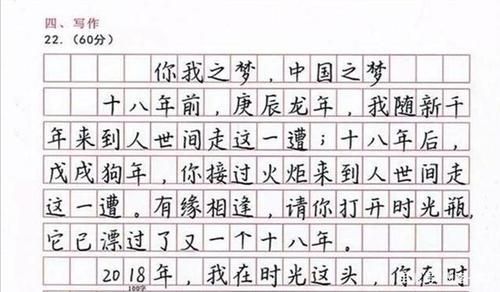 四、写作
22.(60分)
你我之梦，中国之梦
十八年前，庚辰龙年，我随新千
年来到人世间走这一遭；十八年后，
戊戌狗年，你接过火炬来到人世间走
这一遭。有缘相逢，请你打开时光瓶，
它已漂过了又一个十八年。
2018年，我在时光这头，你在时
100字